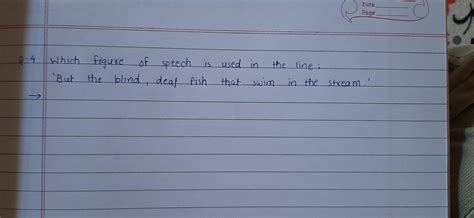 Date
Page
Q-4 Which figure of speech is used in the line:
'But the blind, deaf fish that swim in the stream.'
→